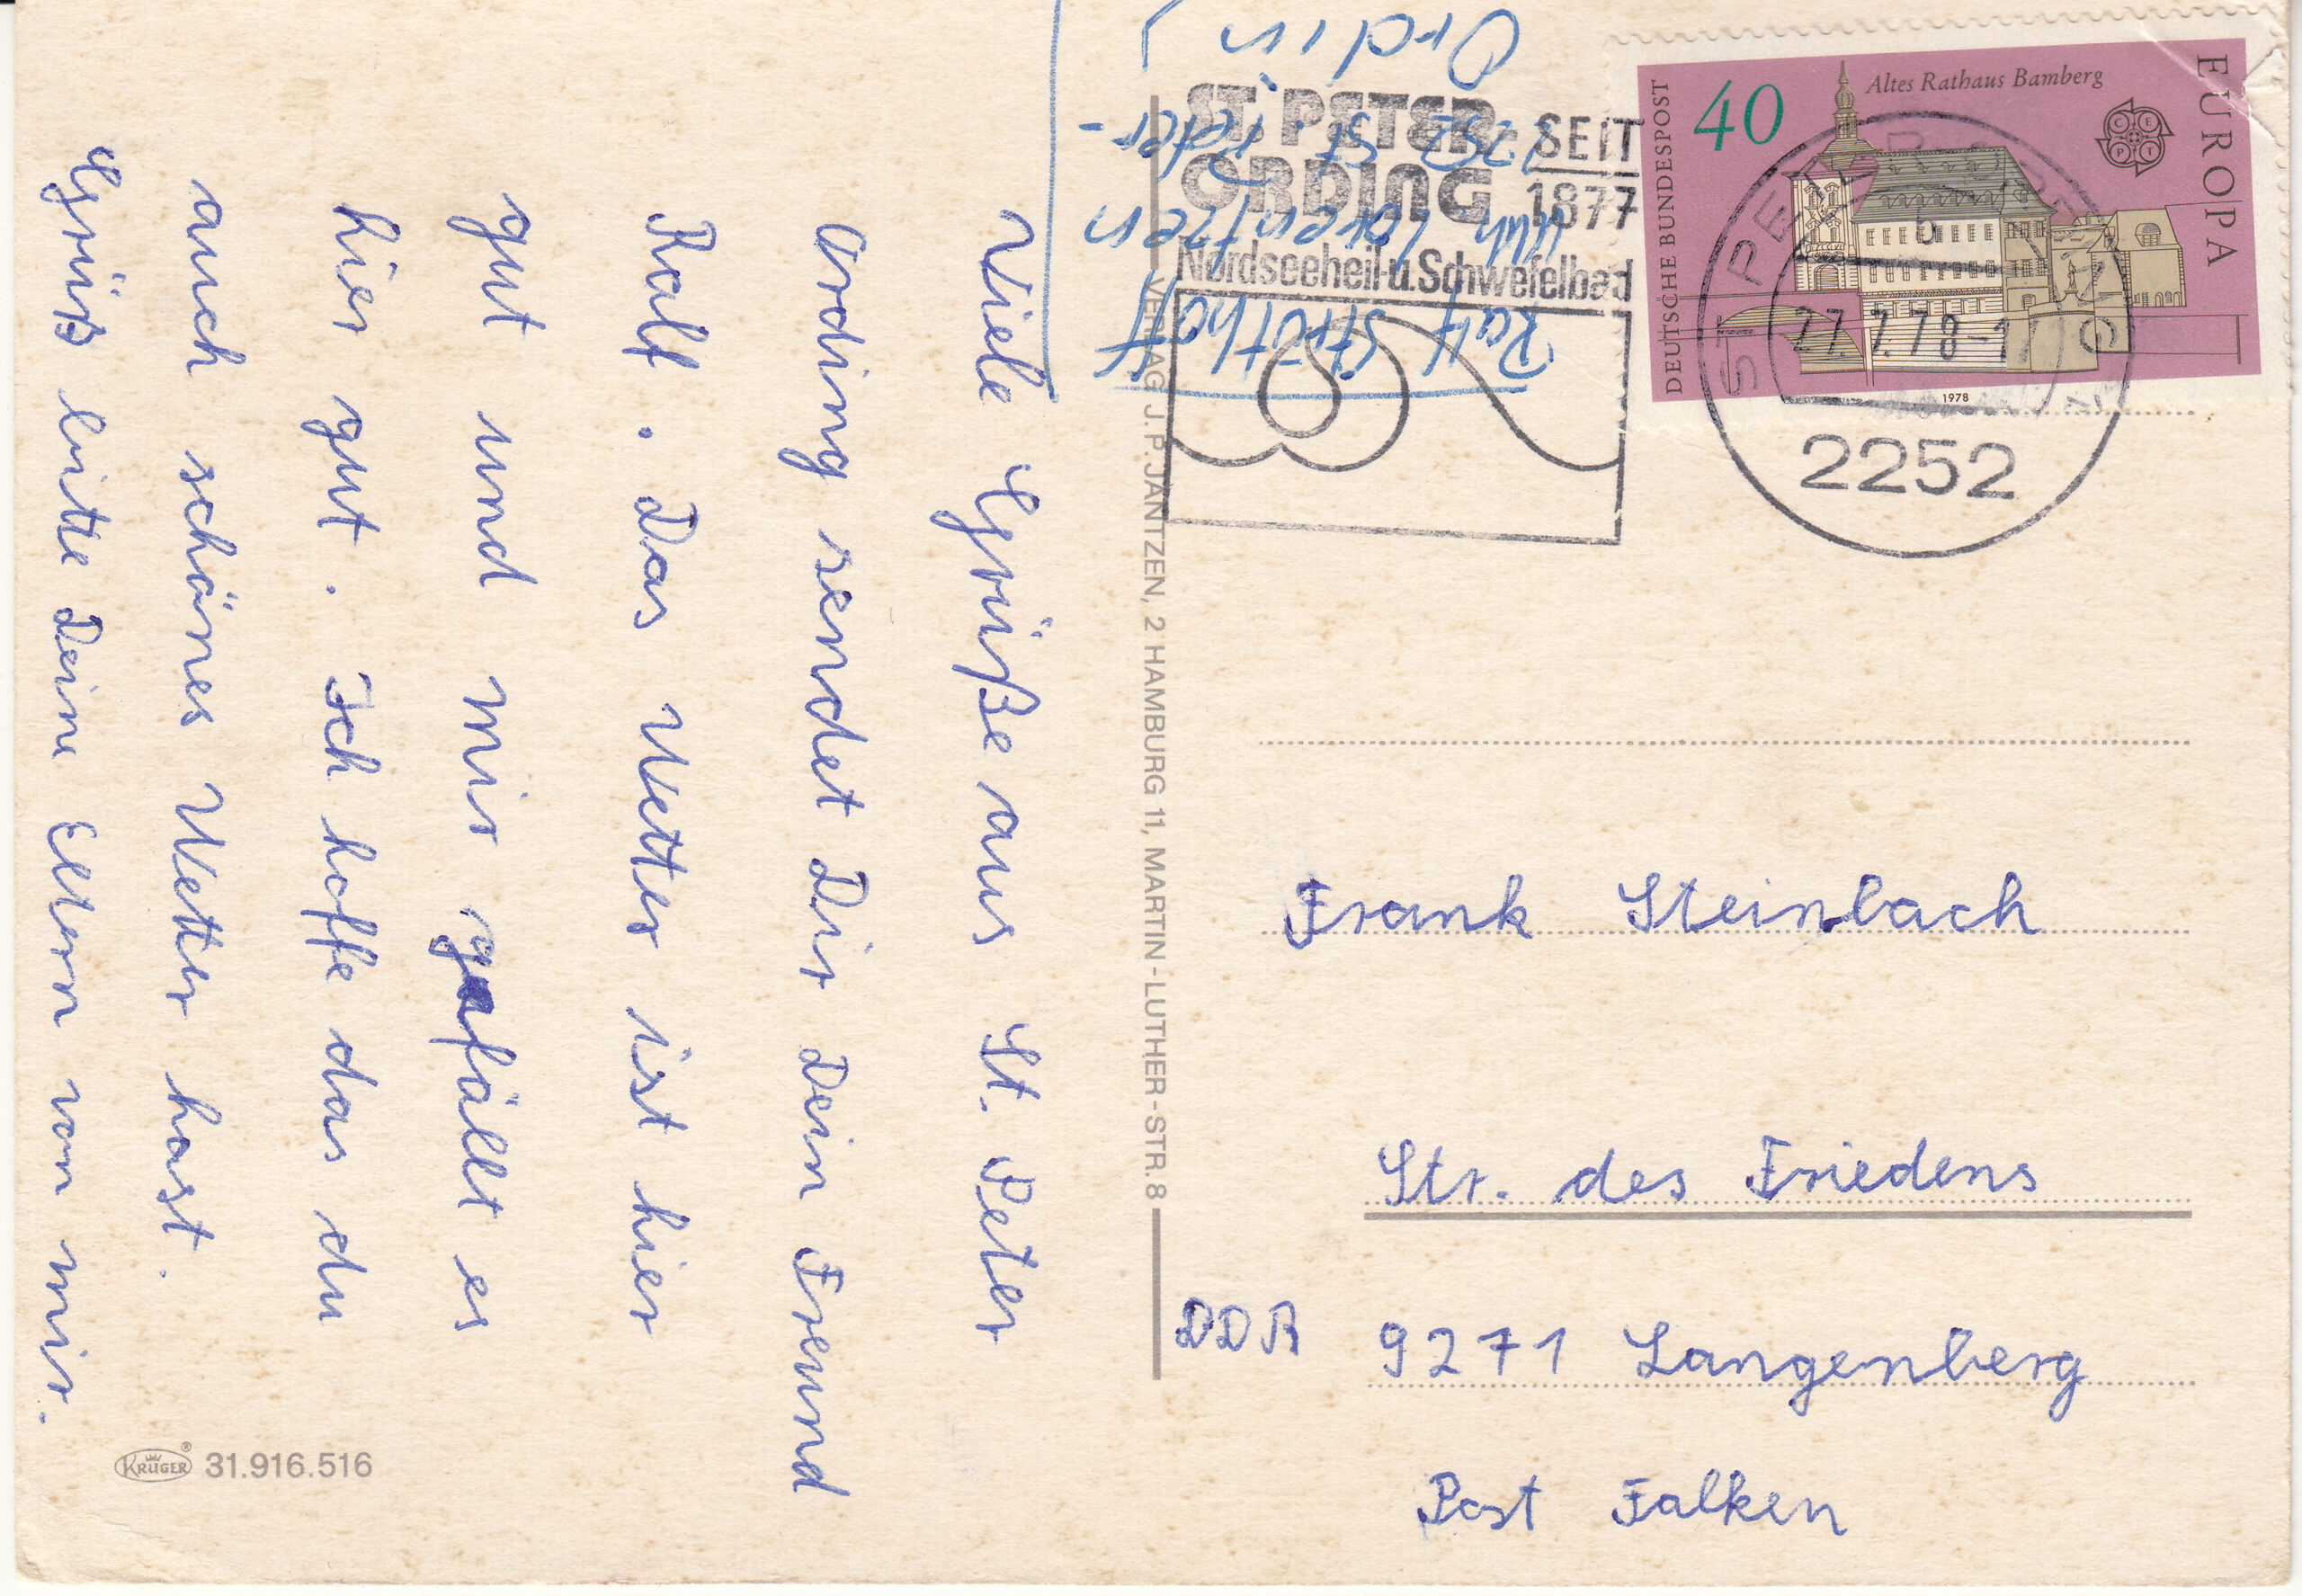 Viele Grüße aus St. Peter
Ording sendet Dir Dein Freund
Ralf. Das Wetter ist hier
gut und mir gefällt es
hier gut. Ich hoffe das du
auch schönes Wetter hast.
Grüß bitte Deine Eltern von mir.
KRÜGER ® 31.916.516
VERLAG J.P. JANTZEN, 2 HAMBURG 11, MARTIN-LUTHER-STR. 8
Ralf Strothoff
Lorentzen
2252 St. Peter-
Ordin
ST. PETER
ORDING
SEIT
1877
Nordseeheil- u. Schwefelbad
DEUTSCHE BUNDESPOST
40
Altes Rathaus Bamberg
CEPT
EUROPA
1978
ST PETER-ORDING
b
27.7.78-17
2252
Frank Steinbach
Str. des Friedens
DDR 9271 Langenberg
Post Falken